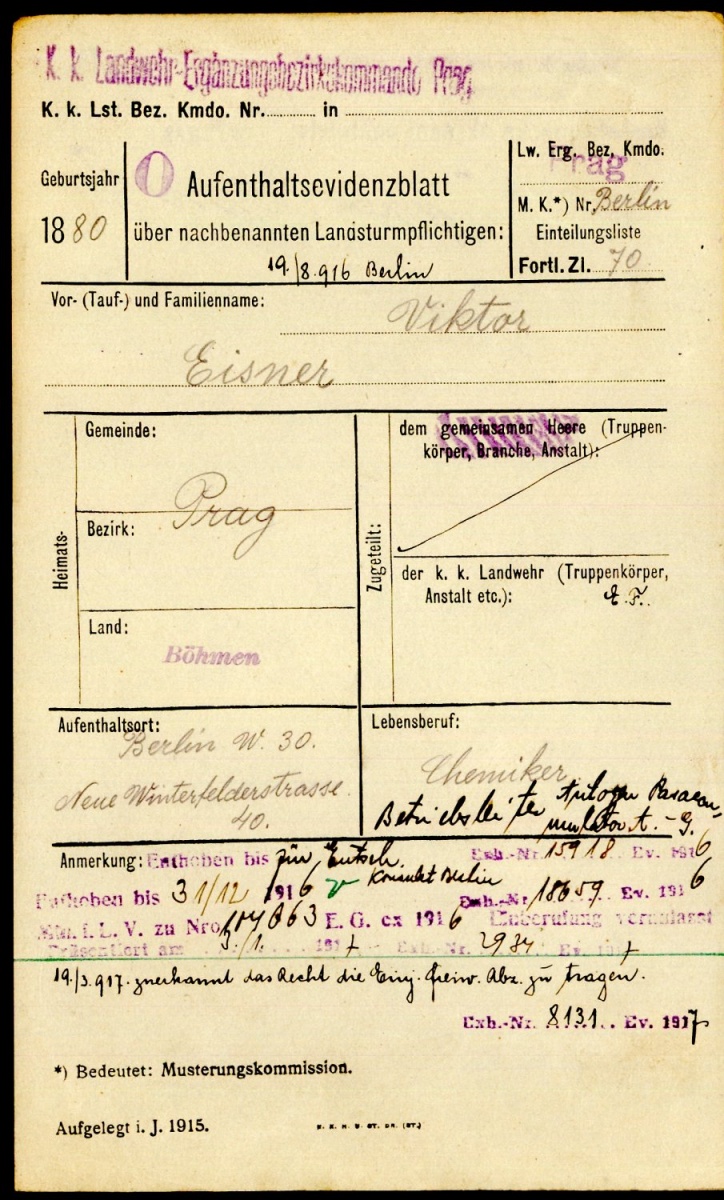 K. k. Landwehr-Ergänzungsbezirkskommando Prag
K. k. Lst. Bez. Kmdo. Nr. in
Geburtsjahr
1880
O
Aufenthaltsevidenzblatt
über nachbenannten Landsturmpflichtigen:
19./8.916 Berlin
Lw. Erg. Bez. Kmdo.
Prag
M. K.*) Nr. Berlin
Einteilungsliste
Fortl. Zl. 70
Vor- (Tauf-) und Familienname: Viktor
Eisner
Heimats-
Gemeinde:
Prag
Bezirk:
Land:
Böhmen
Zugeteilt:
dem gemeinsamen Heere (Truppen-
körper, Branche, Anstalt):
der k. k. Landwehr (Truppenkörper,
Anstalt etc.): E. F.
Aufenthaltsort:
Berlin W. 30.
Neue Winterfelderstrasse
40.
Lebensberuf:
Chemiker
Betriebsleiter
Anmerkung: Enthoben bis zur Entsch. Exh.-Nr. 15918. Ev. 1916
Konsulat Berlin
Enthoben bis 31/12 1916 Exh.-Nr. 18659. Ev. 1916
Min. f. L. V. zu Nro E. G. ex 1916 Einberufung veranlasst
Präsentiert am 3./1. 1917 Exh.-Nr. 2984 Ev. 1917
19./3.917. zuerkannt das Recht die Einj. freiw. Abz. zu tragen.
Exh.-Nr. 8131. Ev. 1917
*) Bedeutet: Musterungskommission.
Aufgelegt i. J. 1915.